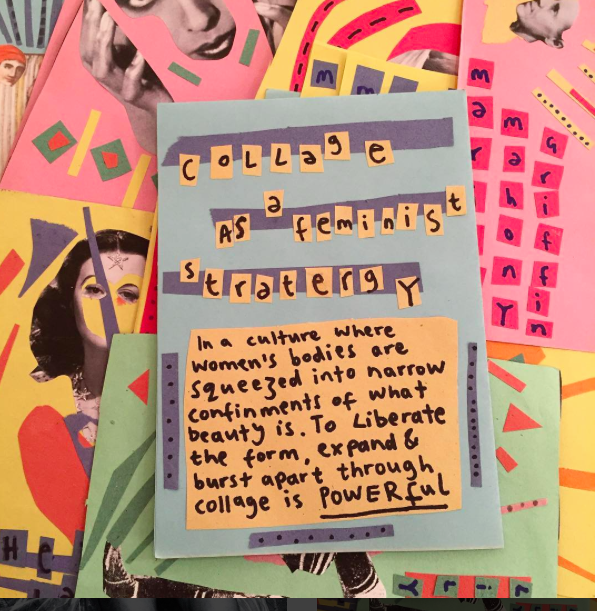 COLLage
As a feminist
stratergY
In a culture where
women's bodies are
squeezed into narrow
confinments of what
beauty is. To Liberate
the form, expand &
burst apart through
collage is POWERfuL
mahonY
Griffin
He